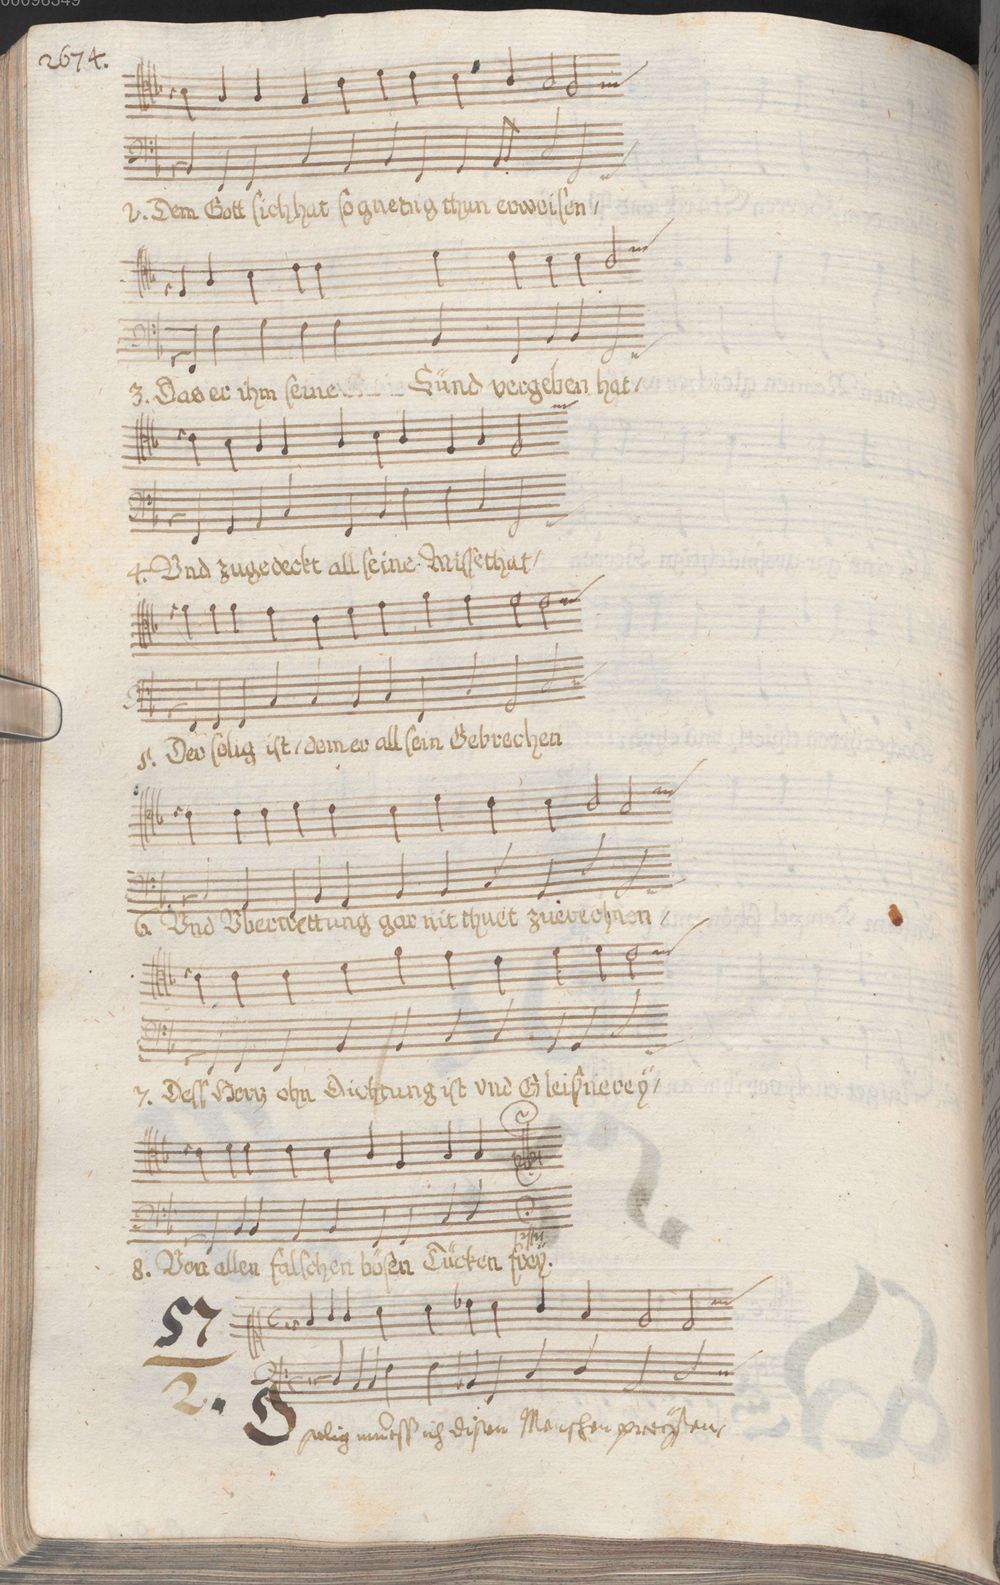 00096349
2674.
2. Dem Gott sich hat so gnetig thun erweisen /
3. Das er ihm seine Sünd vergeben hat /
4. Vnd zugedeckt all seine Missethat /
5. Der selig ist / dem er all sein Gebrechen
6. Vnd Vbertrettung gar nit thuet zuerechnen /
7. Dess Hertz ohn Dichtung ist vnd Gleisnerey /
8. Von allen falschen bösen Tücken frey.
57
2. O selig muess ich disen Menschen preysen,